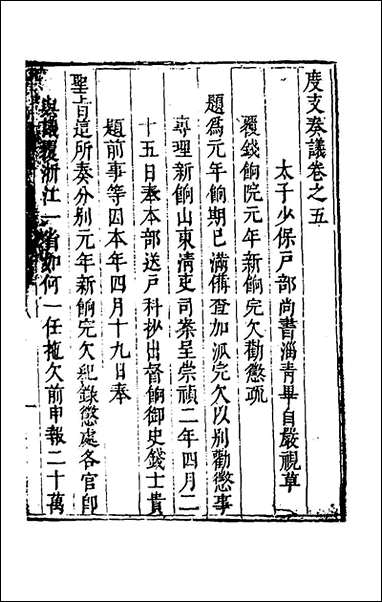 度支奏議卷之五
太子少保戶部尚書淄青畢自嚴視草
覆錢餉院元年新餉完欠勸懲疏
題為元年餉期已滿備查加派完欠以別勸懲事
專理新餉山東清吏司案呈崇禎二年四月二
十五日奉本部送戶科抄出督餉御史錢士貴
題前事等因本年四月十九日奉
聖旨這所奏分別元年新餉完欠紀錄懲處各官即
與議覆浙江一省如何一任拖欠前申報二十萬